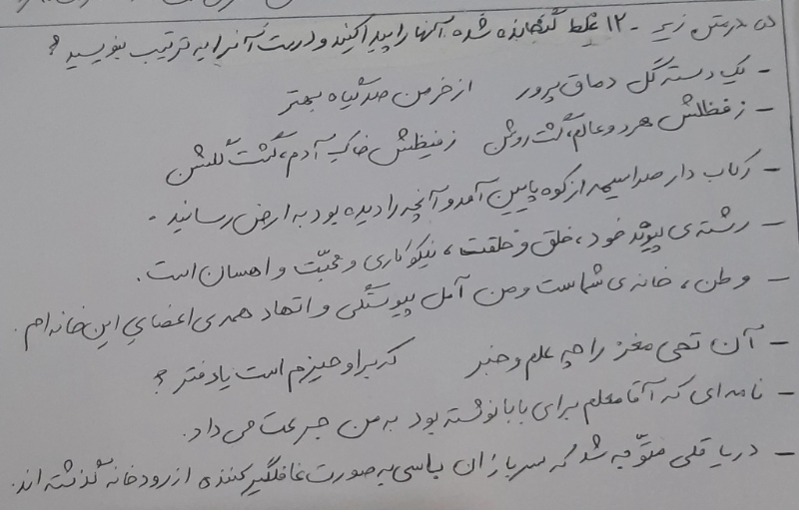 در متن زیر - ۱۲ غلط گنجانده شده آنها را پیدا کنید و درست آنرا به ترتیب بنویسید؟
- یک دسته گل دماق پرور از خرمن صد گیاه بهتر
- ز فظلش هر دو عالم گشت روشن ز فیظش خاک آدم، گشت گلشن
- رکاب دار صراسیمه از کوه پایین آمد و آنچه را دیده بود به ارض رسانید.
- رشته‌ی پیوند خود، خلق و خلقت، نیکوکاری و محبّت و اهسان است.
- وطن، خانه‌ی شماست و من آمل پیوستگی و اتهاد همه‌ی اعضای این خانه‌ام.
- آن تحی مغز را چه علم و خبر که بر او حیزم است یا دفتر؟
- نامه‌ای که آقا معلم برای بابا نوشته بود به من جرعت می داد.
- دریا قلی متوّجه شد که سربازان بأسی به صورت غافلگیر کننده از رودخانه گذشته‌اند.